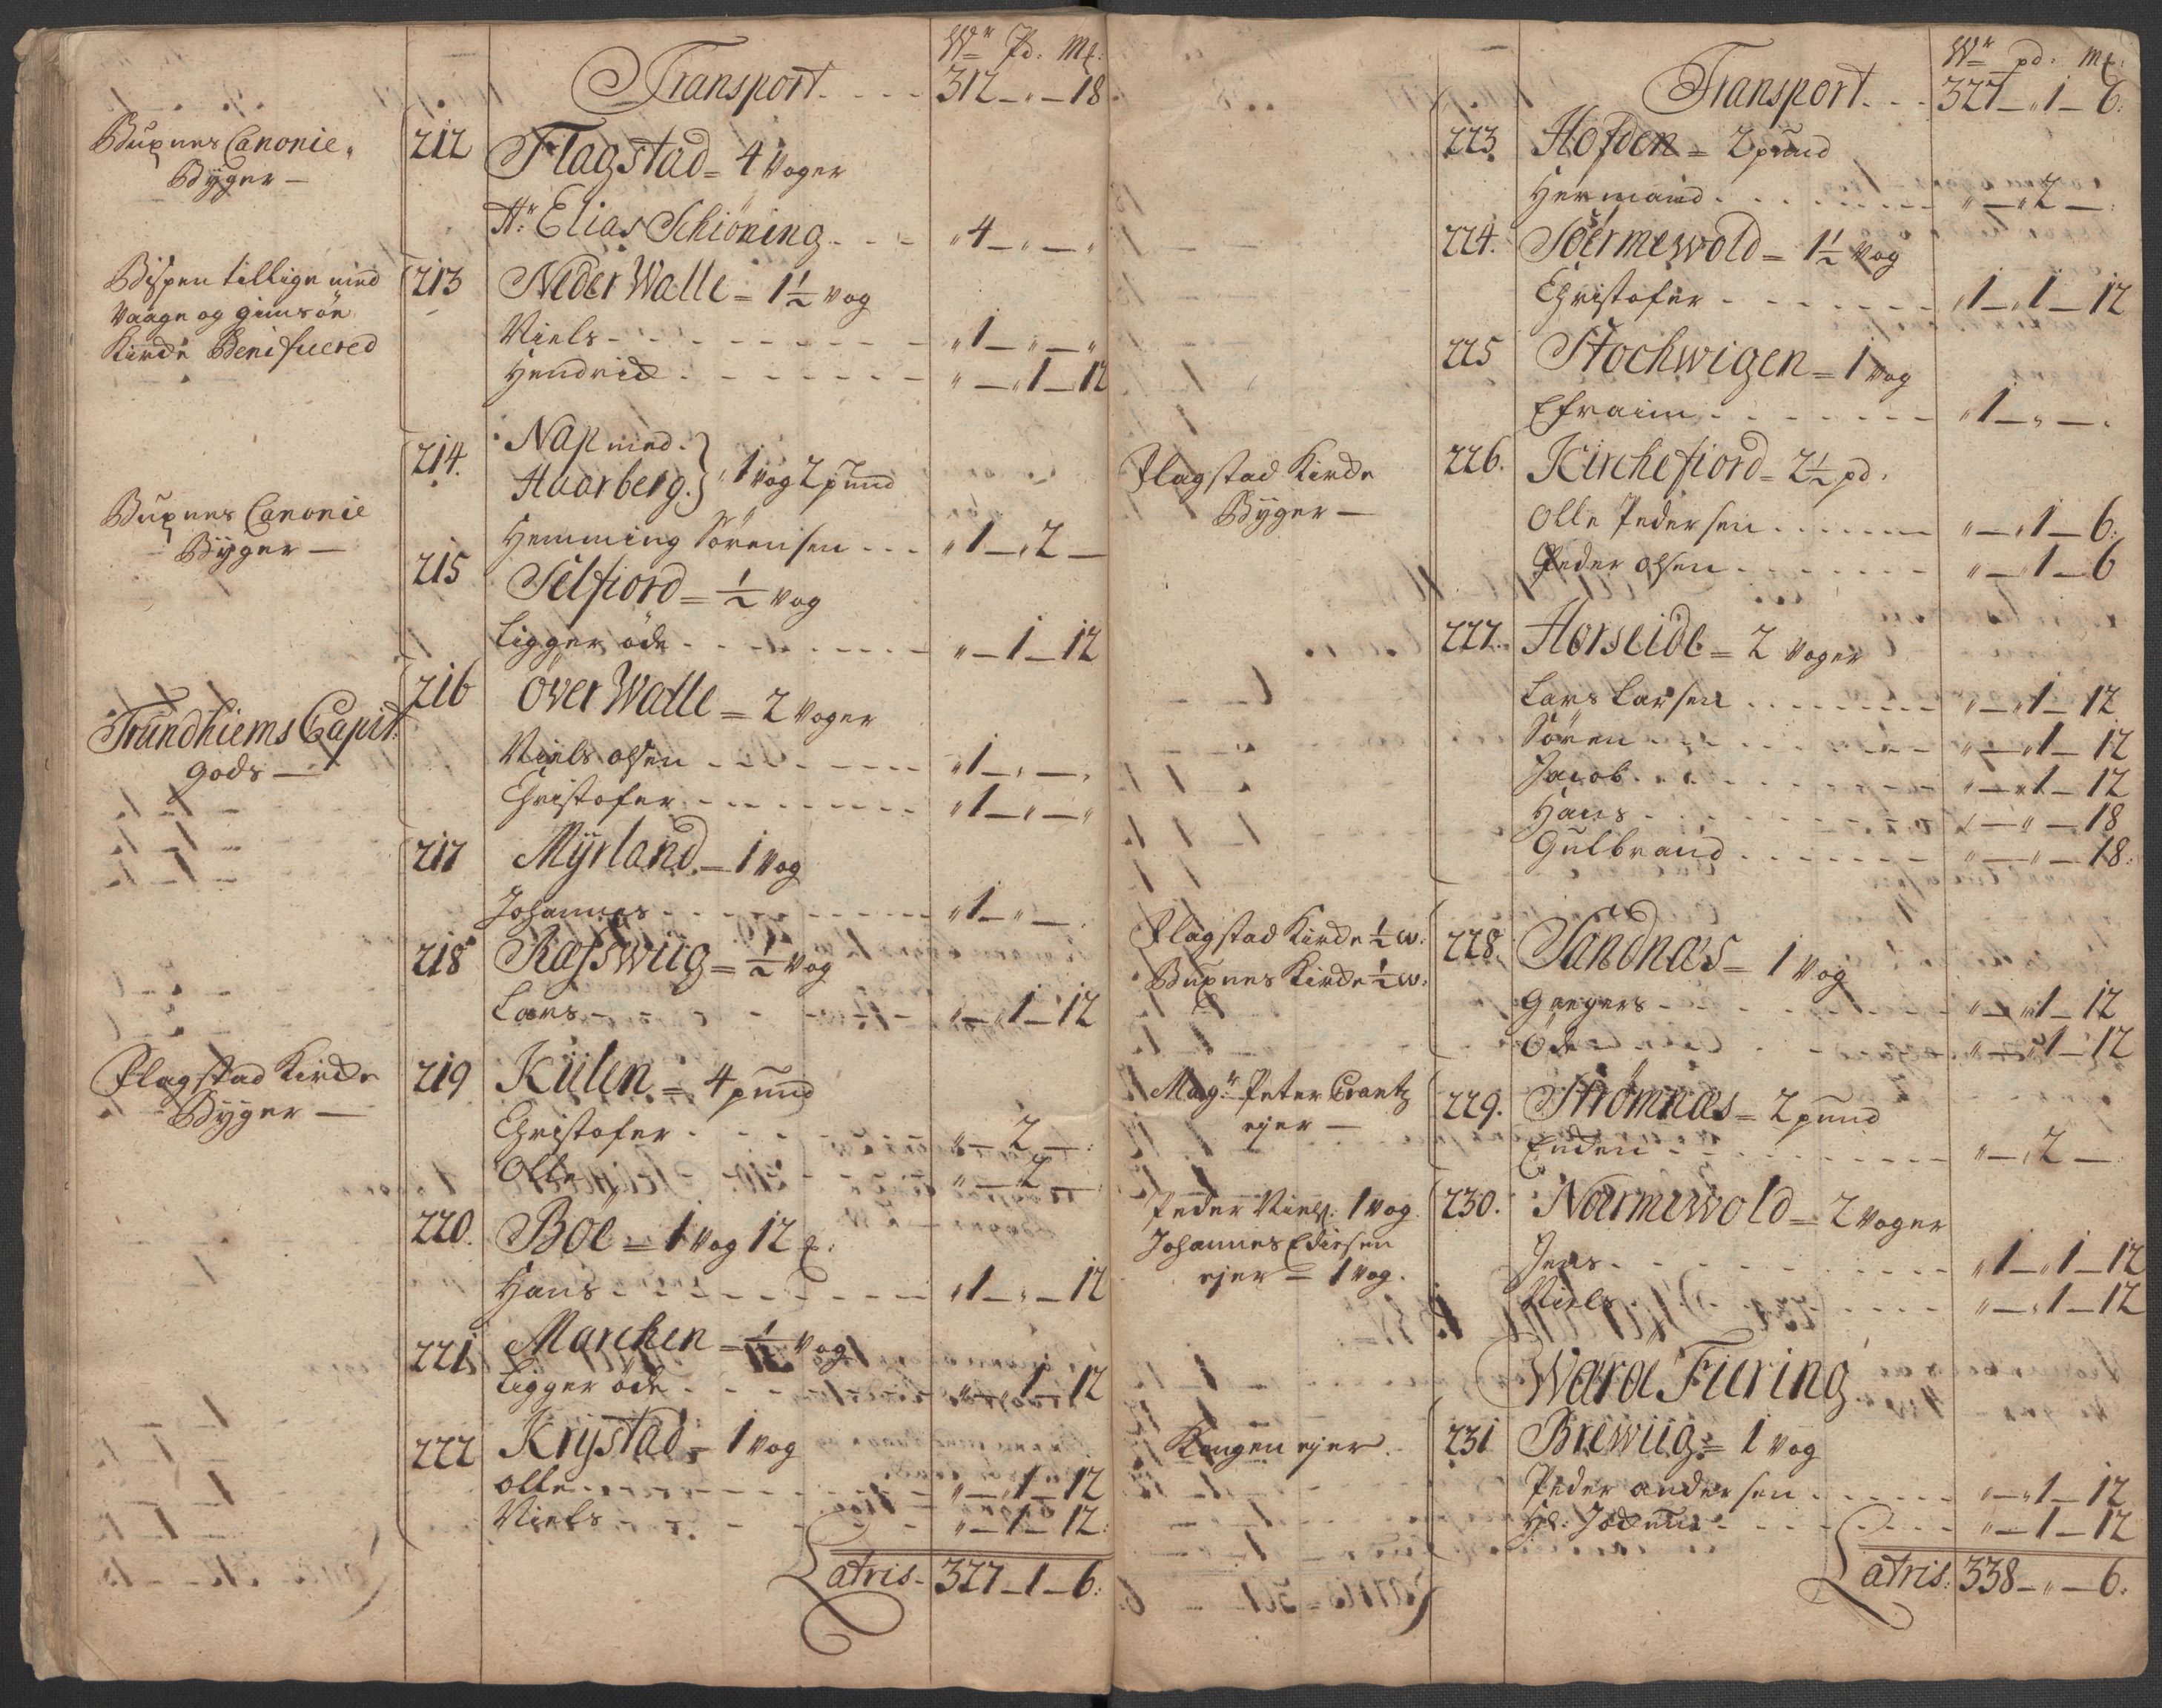 Wr Pd. Mk:
Transport. - - - 312 - „ - 18
Buxnes Canonie
Byger -
212 Flagstad = 4 Voger
Hr: Elias Schiöning - - - „ 4 - „ - „
Bispen tillige med
Vaage og gimsöe
Kirche Beneficered
213 Neder Walle = 1 1/2 vog
Niels - - - - „ 1 - „ - „
Hendrich - - - - „ - „ 1 - 12
214. Nap med
Haarberg. } 1 Vog 2 pund
Buxnes Canonie
Byger -
Hemming Sörensen - - - „ 1 - „ 2 -
215 Selfiord = 1/2 vog
Ligger öde - - - - „ - 1 - 12
216 över Walle = 2 Voger
Trundhiems Capit:
gods -
Niels olsen - - - - „ 1 - „ - „
Christofer - - - - „ 1 - „ - „
217 Myrland - 1 Vog
Johannes - - - - „ 1 - „ -
218 Rasswiig = 1/2 Vog
Lars - - - - „ - „ 1 - 12
Flagstad Kirche
Byger -
219 Kiilen = 4 pund
Christofer - - - „ - 2 -
Olle „ - 2 -
220 Böe = 1 Vog 12 Mk:
Hans - - - - „ 1 - „ - 12
221 Marchen = 1/2 Vog
Ligger öde - - - „ - „ 1 - 12
222 Krystad = 1 Vog
Olle - - - - „ - „ 1 - 12
Niels - - - - „ - 1 - 12
Latris - 327 - 1 - 6:
Wr pd. Mk:
Transport. - - 327 - „ 1 - 6:
223. Hofden = 2 pund
Hermand. - - - - „ - „ 2 -
224. Söermewold = 1 1/2 Vog
Christofer - - - - „ 1 - „ 1 - 12
225 Stochwigen = 1 Vog
Efraim - - - - „ 1 - „ -
Flagstad Kirche
Byger -
226. Kirchefiord = 2 1/2 pd.
Olle Pedersen - - - - „ - „ 1 - 6.
Peder olsen - - - - „ - „ 1 - 6
227. Horseide = 2 Voger
Lars Larsen - - - - „ - „ 1 - 12
Sören - - - - „ - „ 1 - 12
Jacob - - - - „ - „ 1 - 12
Hans - - - - „ - „ - 18
Gulbrand - - - - „ - „ - 18.
Flagstad Kirche 1/2 w:
Buxnes Kirche 1/2 w:
228. Sandnæs = 1 Vog
Gregers - - - - „ - „ 1 - 12
Öde - - - - „ - „ 1 - 12
Magr: Peter Crantz
ejer -
229. Strömnæs = 2 pund
Enchen - - - - „ - „ 2 -
Peder Niels: 1 Vog
Johannes Edisen
ejer = 1 Vog.
230. Nærmewold = 2 Voger
Jens - - - - „ 1 - „ 1 - 12
Niels - - - - „ - „ 1 - 12
Waröe Fiering
Kongen ejer.
231 Brewiig = 1 Vog
Peder andersen - - - „ - „ 1 - 12
- - - - „ - 1 - 12
Latris: 338 - „ - 6.